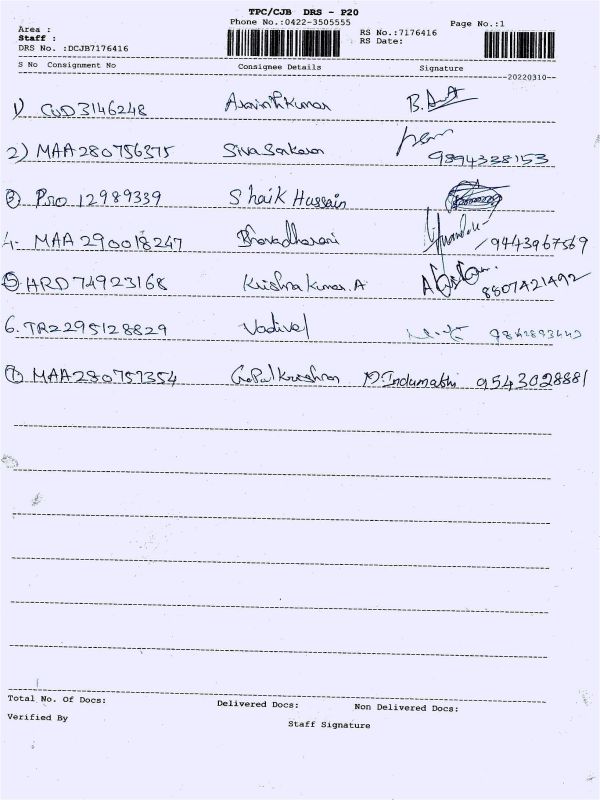 TPC/CJB DRS - P20
Phone No.:0422-3505555
Page No.:1
Area :
RS No.:7176416
Staff :
RS Date:
DRS No. :DCJB7176416
S No Consignment No Consignee Details Signature
20220310
1) CUD3146248 Aravinthkumar B.
2) MAA280756375 Sivasankaran 9894338153
3) PRO 12989339 Shaik Hussain
4. MAA 290018247 Bhavadharani 9443967569
5) HRD74923168 Krishna Kumar.A 8807421492
6. TRZ295128829 Vadivel
7) MAA280757354 Gopal Krishnan M.Indumathi 9543028881
Total No. Of Docs: Delivered Docs: Non Delivered Docs:
Verified By Staff Signature